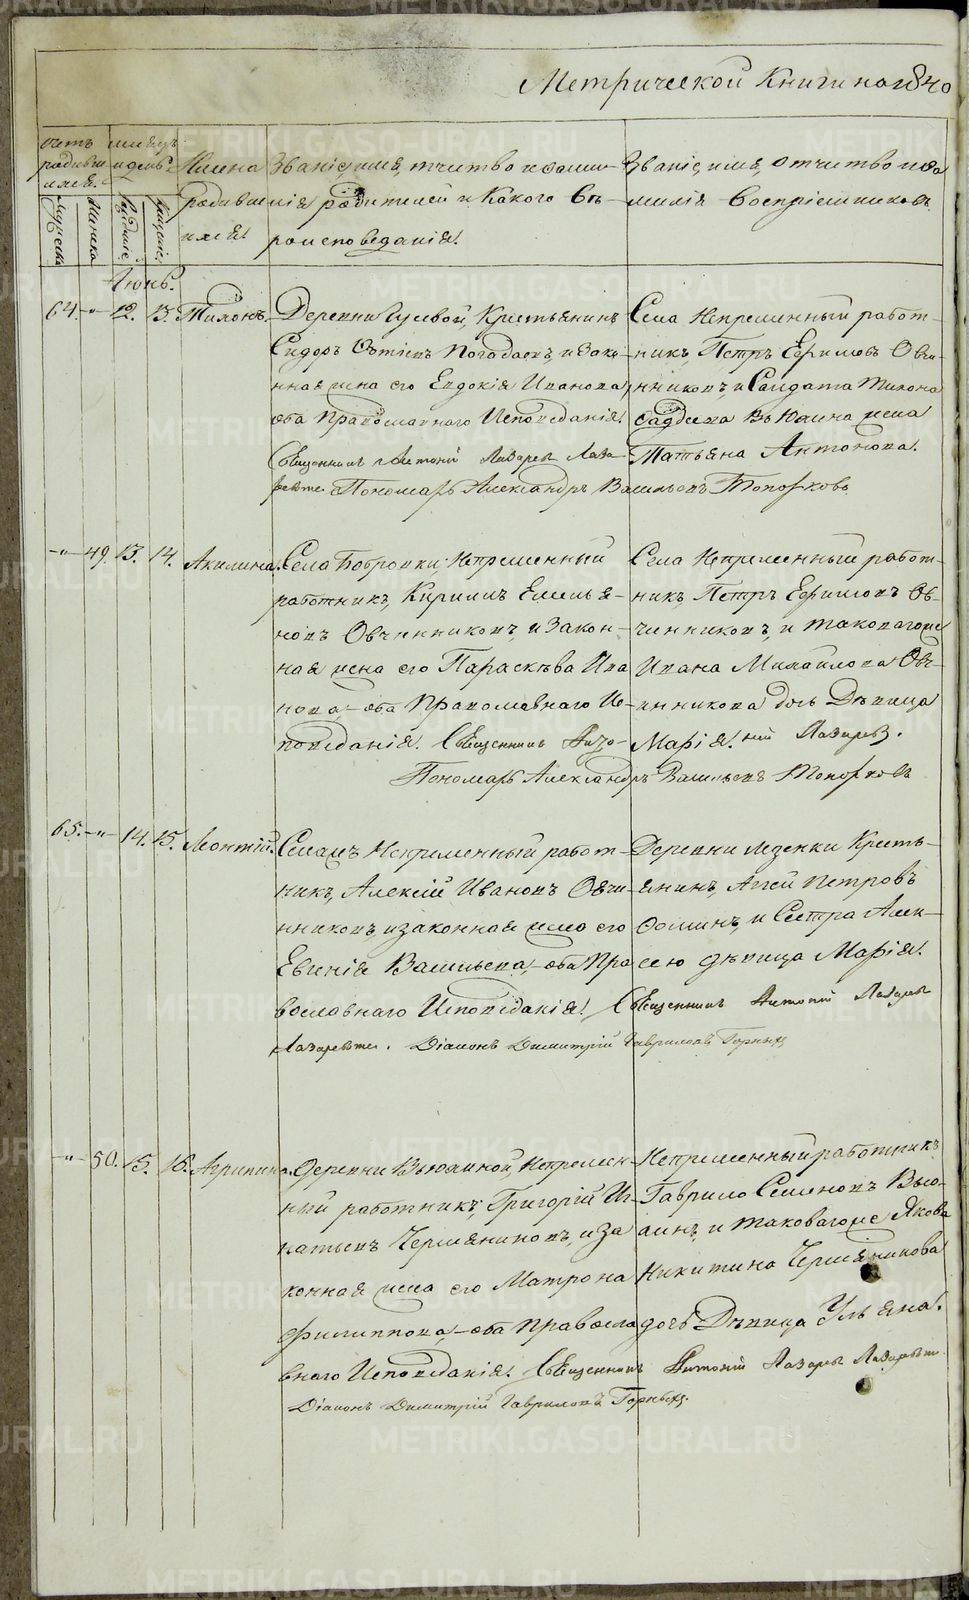 Метрической Книги на 1840
счетъ родившихся. месяцъ и день.
Мужеска Женска Рожденія Крещенія
Имена родившихся.
Званіе, имя, отчество и фамилія родителей и Какого вѣроисповеданія.
Званіе, имя, отчество и фамилія воспріемниковъ.
Іюнь.
64. -"- 12. 13. Тихонъ.
Деревни Гусевой, Крестьянинъ
Сидоръ Погодаевъ, и Зако-
нная жена его Евдокія Иванова,
оба Православнаго Исповеданія.
Священникъ Антоній Лазаревъ
Пономарь Александръ Васильевъ Топорковъ
Села Непременный работ-
никъ, Петръ Ефимовъ Овчи-
нниковъ, и Салдата Тихона
Вьюхина жена
Татьяна Антонова.
-"- 49. 13. 14. Акилина.
Села Бобровки Непременный
работникъ, Кириллъ Емелья-
новъ Овчинниковъ, и Закон-
ная жена его Параскѣва Ива
нова, оба Православнаго Ис-
поведанія. Священникъ Анто-
ній Лазаревъ.
Пономарь Александръ Васильевъ Топорковъ
Села Непременный работ-
никъ, Петръ Ефимовъ Ов-
чинниковъ, и таковагоже
Ивана Михайлова Овч-
инникова дочь Дѣвица
Марія.
65. -"- 14. 15. Леонтій.
Селамъ Непременный работ-
никъ, Алексій Ивановъ Овчи-
нниковъ, и законная жена его
Евгенія Васильева, оба Пра
вославнаго Исповѣданія. Священникъ Антоній Лазаревъ
Діаконъ Димитрій Гавриловъ Горныхъ
Деревни Кресть-
янинъ, Петровъ
Фоминъ, и Сестра Алек-
сею дѣвица Марія.
-"- 50. 15. 16. Агрипина.
Деревни Вьюхиной, Непремен-
ный работникъ, Григорій Иг-
натьевъ Чермяниновъ, и за
конная жена его Матрона
Филиппова, оба Правосла
внаго Исповеданія. Священникъ Антоній Лазаревъ
Діаконъ Димитрій Гавриловъ Горныхъ
Непременный работникъ
Гаврило Семеновъ Вью-
хинъ, и таковагоже Якова
Никитина Чермянинова
дочь Дѣвица Ульяна.
METRIKI.GASO-URAL.RU